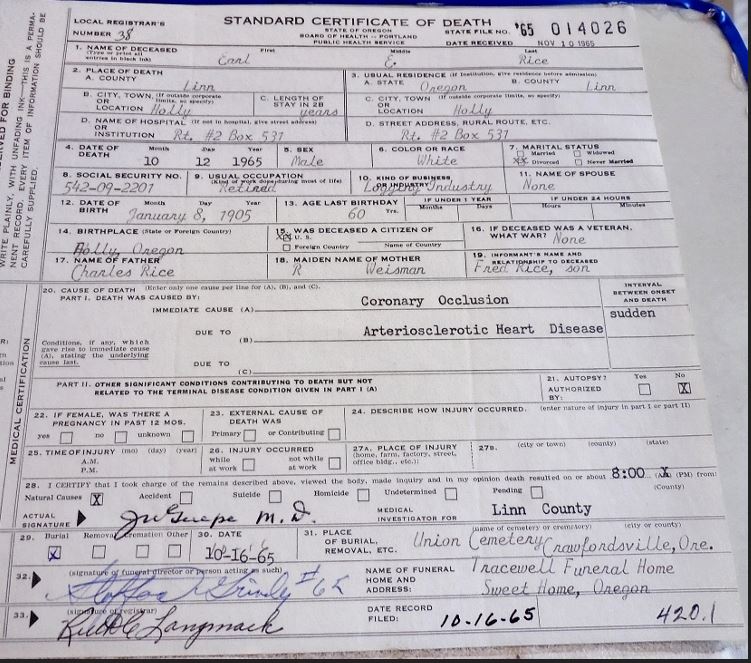 LOCAL REGISTRAR'S
NUMBER 38
STANDARD CERTIFICATE OF DEATH
STATE OF OREGON
BOARD OF HEALTH -- PORTLAND
PUBLIC HEALTH SERVICE
STATE FILE NO. '65 014026
DATE RECEIVED NOV 10 1965
1. NAME OF DECEASED First Middle Last
(Type or print all entries in black ink) Earl E. Rice
2. PLACE OF DEATH
A. COUNTY Linn
3. USUAL RESIDENCE (If institution, give residence before admission)
A. STATE Oregon B. COUNTY Linn
B. CITY, TOWN (If outside corporate limits, so specify) OR LOCATION Holly
C. LENGTH OF STAY IN 2B years
C. CITY, TOWN (If outside corporate limits, so specify) OR LOCATION Holly
D. NAME OF HOSPITAL (If not in hospital, give street address) OR INSTITUTION Rt. #2 Box 531
D. STREET ADDRESS, RURAL ROUTE, ETC. Rt. #2 Box 531
4. DATE OF DEATH Month Day Year 10 12 1965
5. SEX Male
6. COLOR OR RACE White
7. MARITAL STATUS
Married Widowed
XX Divorced Never Married
8. SOCIAL SECURITY NO. 542-09-2201
9. USUAL OCCUPATION (Kind of work done during most of life) Retired
10. KIND OF BUSINESS OR INDUSTRY Logging Industry
11. NAME OF SPOUSE None
12. DATE OF BIRTH Month Day Year January 8, 1905
13. AGE LAST BIRTHDAY 60 Yrs.
IF UNDER 1 YEAR Months Days
IF UNDER 24 HOURS Hours Minutes
14. BIRTHPLACE (State or Foreign Country) Holly, Oregon
15. WAS DECEASED A CITIZEN OF
XX U.S.
Foreign Country Name of Country
16. IF DECEASED WAS A VETERAN, WHAT WAR? None
17. NAME OF FATHER Charles Rice
18. MAIDEN NAME OF MOTHER R Weisman
19. INFORMANT'S NAME AND RELATIONSHIP TO DECEASED Fred Rice, son
20. CAUSE OF DEATH (Enter only one cause per line for (A), (B), and (C).
PART I. DEATH WAS CAUSED BY:
INTERVAL BETWEEN ONSET AND DEATH
IMMEDIATE CAUSE (A) Coronary Occlusion sudden
Conditions, if any, which gave rise to immediate cause (A), stating the underlying cause last.
DUE TO (B) Arteriosclerotic Heart Disease
DUE TO (C)
PART II. OTHER SIGNIFICANT CONDITIONS CONTRIBUTING TO DEATH BUT NOT
RELATED TO THE TERMINAL DISEASE CONDITION GIVEN IN PART I (A)
21. AUTOPSY? AUTHORIZED BY: Yes No X
22. IF FEMALE, WAS THERE A PREGNANCY IN PAST 12 MOS.
yes no unknown
23. EXTERNAL CAUSE OF DEATH WAS
Primary or Contributing
24. DESCRIBE HOW INJURY OCCURRED. (enter nature of injury in part I or part II)
25. TIME OF INJURY (mo) (day) (year)
A.M.
P.M.
26. INJURY OCCURRED
while at work not while at work
27A. PLACE OF INJURY (home, farm, factory, street, office bldg., etc.):
27B. (city or town) (county) (state)
28. I CERTIFY that I took charge of the remains described above, viewed the body, made inquiry and in my opinion death resulted on or about 8:00 (PM) from:
Natural Causes X Accident Suicide Homicide Undetermined Pending (County)
ACTUAL SIGNATURE M.D.
MEDICAL INVESTIGATOR FOR Linn County
29. Burial Removal Cremation Other
X
30. DATE 10-16-65
31. PLACE OF BURIAL, REMOVAL, ETC. (name of cemetery or crematory) (city or county)
Union Cemetery Crawfordsville, Ore.
32. (signature of funeral director or person acting as such)
NAME OF FUNERAL HOME AND ADDRESS: Tracewell Funeral Home
Sweet Home, Oregon
33. (signature of registrar) Langmack
DATE RECORD FILED: 10-16-65 420.1
WRITE PLAINLY, WITH UNFADING INK—THIS IS A PERMA-
NENT RECORD. EVERY ITEM OF INFORMATION SHOULD BE
CAREFULLY SUPPLIED.
FOR BINDING
MEDICAL CERTIFICATION